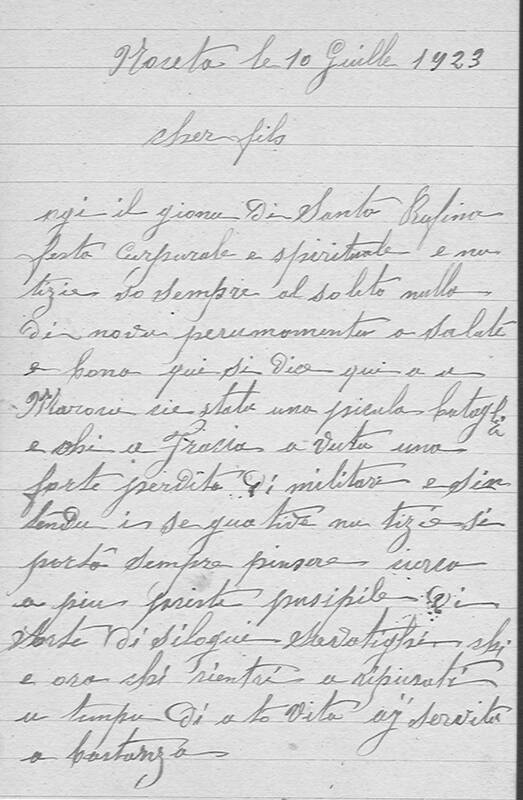 Noceta le 10 Guille 1923
cher fils
ogi il giorna di Santa Rufina
festa curpurale e spirituale e no
tizie so sempre al solito nulla
di novu perumomento a salute
e bona qui si dice qui a u
Marocu cie stata una picula batagli
a
e chi a Francia a vuta una
forte perdita di militare e sin
tendu i se guative no tizie si
portà sempre pinsere cierca
a piu preiste pusipile di
sorte di siloghi servatighi chi
e ora chi rientri a ripusati
u tempu di a to vita ai servita
a bastanza